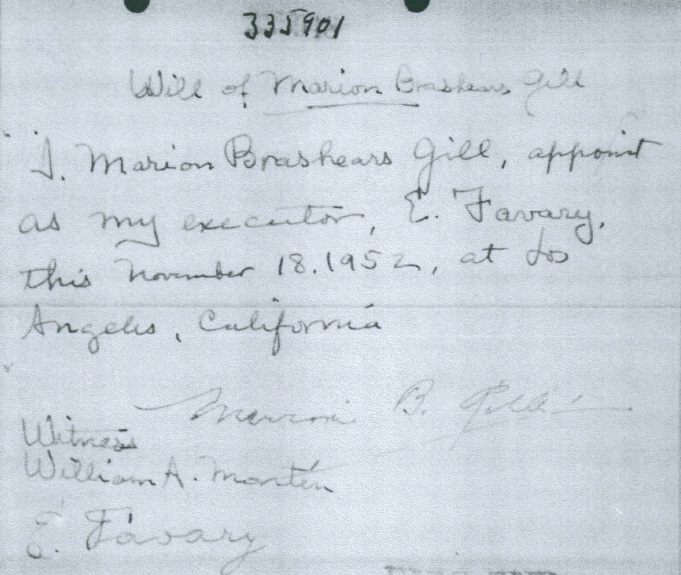 335901
Will of Marion Brashears Gill
I. Marion Brashears Gill, appoint
as my executor, E. Favary,
this November 18.1952, at Los
Angeles, California
Marion B. Gill
Witness
William A. Martin
E. Favary